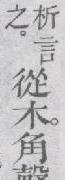 析言
之。
從木。角聲